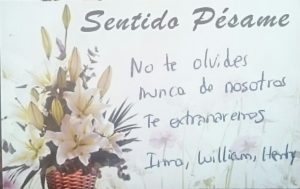 Sentido Pésame
No te olvides
nunca de nosotros
Te extrañaremos
Irma, William, Henry